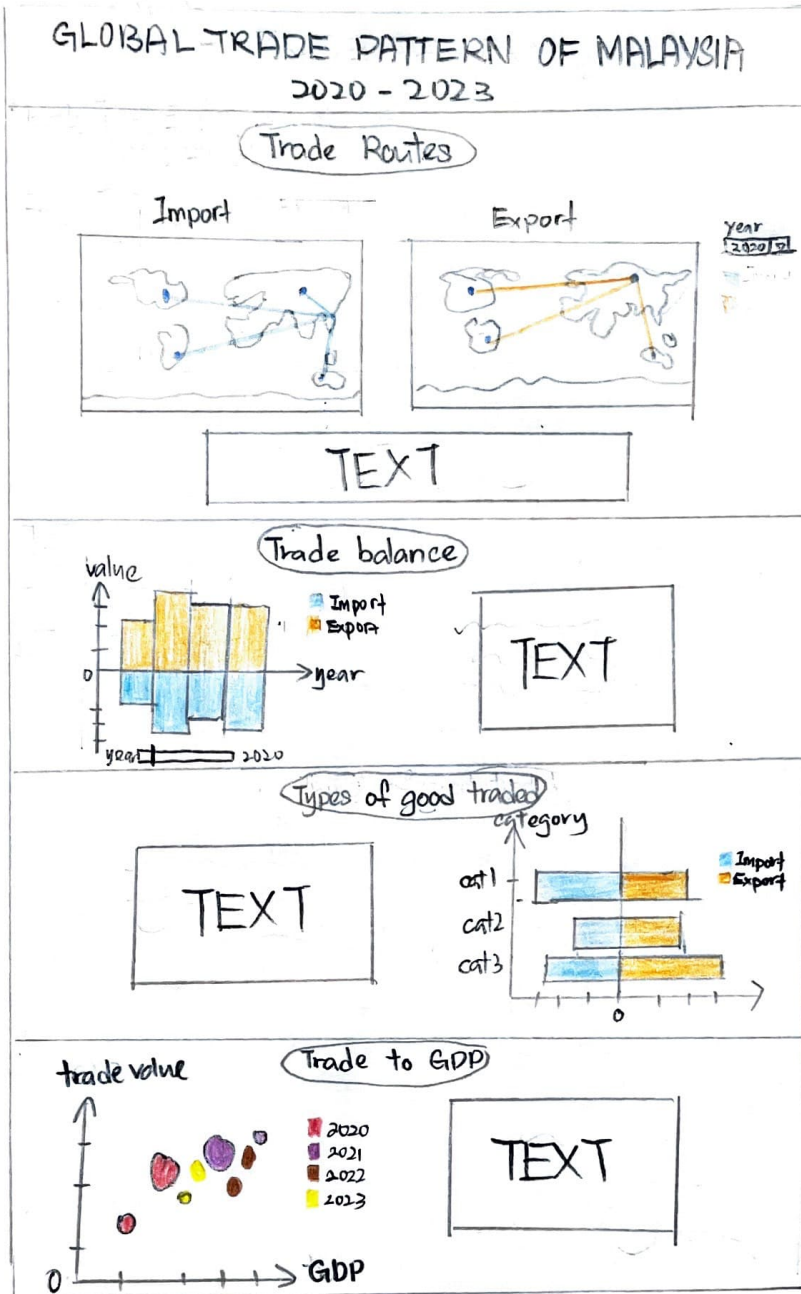 GLOBAL TRADE PATTERN OF MALAYSIA
2020 - 2023
Trade Routes
Import
Export
year
2020
TEXT
Trade balance
value
Import
Export
0
year
year
2020
TEXT
Types of good traded
category
TEXT
Import
Export
cat1
cat2
cat3
0
Trade to GDP
trade value
2020
2021
2022
2023
TEXT
0
GDP